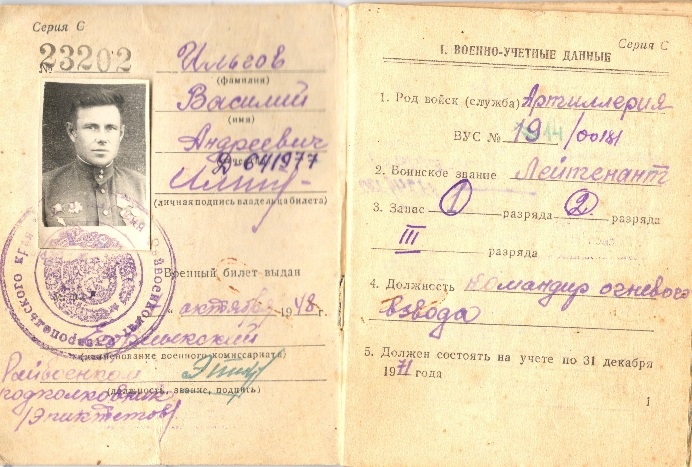 Серия С
№ 23202
Ильгов
(фамилия)
Василий
(имя)
Андреевич
Д 641977
(личная подпись владельца билета)
Военный билет выдан
" октября 1948 г.
(наименование военного комиссариата)
Райвоенком
подполковник
(должность, звание, подпись)
/Эпиктетов/
Серия С
I. ВОЕННО-УЧЕТНЫЕ ДАННЫЕ
1. Род войск (служба) Артиллерия
ВУС № 1944/00181
2. Воинское звание Лейтенант
3. Запас 1 разряда 2 разряда
III разряда
4. Должность Командир огневого
взвода
5. Должен состоять на учете по 31 декабря
1971 года
1